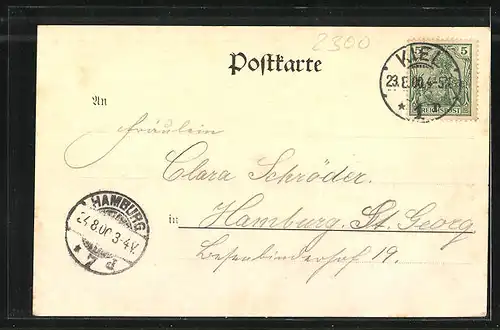 2300
Postkarte
KIEL
23.8.00.4-5N.
5
REICHSPOST
An
Fräulein
Clara Schröder.
in Hamburg. St. Georg
Besenbinderhof 19.
HAMBURG
24.8.00.3-4V.